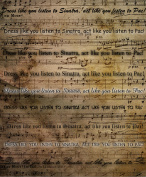 Dress like you listen to Sinatra, act like you listen to Pac!
Dress like you listen to Sinatra, act like you listen to Pac!
Dress like you listen to Sinatra, act like you listen to Pac!
Dress like you listen to Sinatra, act like you listen to Pac!
Dress like you listen to Sinatra, act like you listen to Pac!
Dress like you listen to Sinatra, act like you listen to Pac!
Dress like you listen to Sinatra, act like you listen to Pac!
Dress like you listen to Sinatra, act like you listen to Pac!